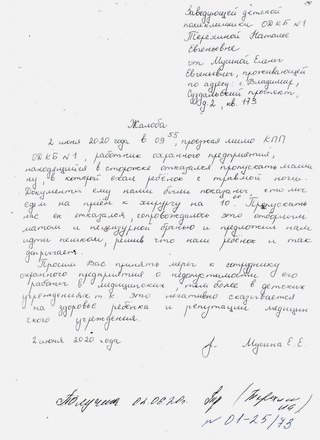 Заведующей детской
поликлиники ОДКБ №1
Терехиной Наталье
Евгеньевне
от Мушной Елены
Евгеньевны, проживающей
по адресу: г. Владимир,
Суздальский проспект,
д. 2, кв. 173
Жалоба
2 июня 2020 года в 09 55, проезжая мимо КПП
ОДКБ №1, работник охранного предприятия,
находящийся в сторожке отказался пропускать маши
ну, в которой ехал ребёнок с травмой ноги.
Документы ему нами были показаны, что мы
едем на приём к хирургу на 10.00 Пропускать
нас он отказался, сопровождалось это отборным
матом и нецензурной бранью и предложил нам
идти пешком, решив что наш ребенок и так
допрыгает.
Просим Вас принять меры к сотруднику
охранного предприятия о недопустимости его
работы в медицинских, тем более в детских
учреждениях т.к. это негативно сказывается
на здоровье ребёнка и репутации медицин
ского учреждения.
2 июня 2020 года
Мушна Е. Е.
Получила 02.06.20г.
№ 01-25/73